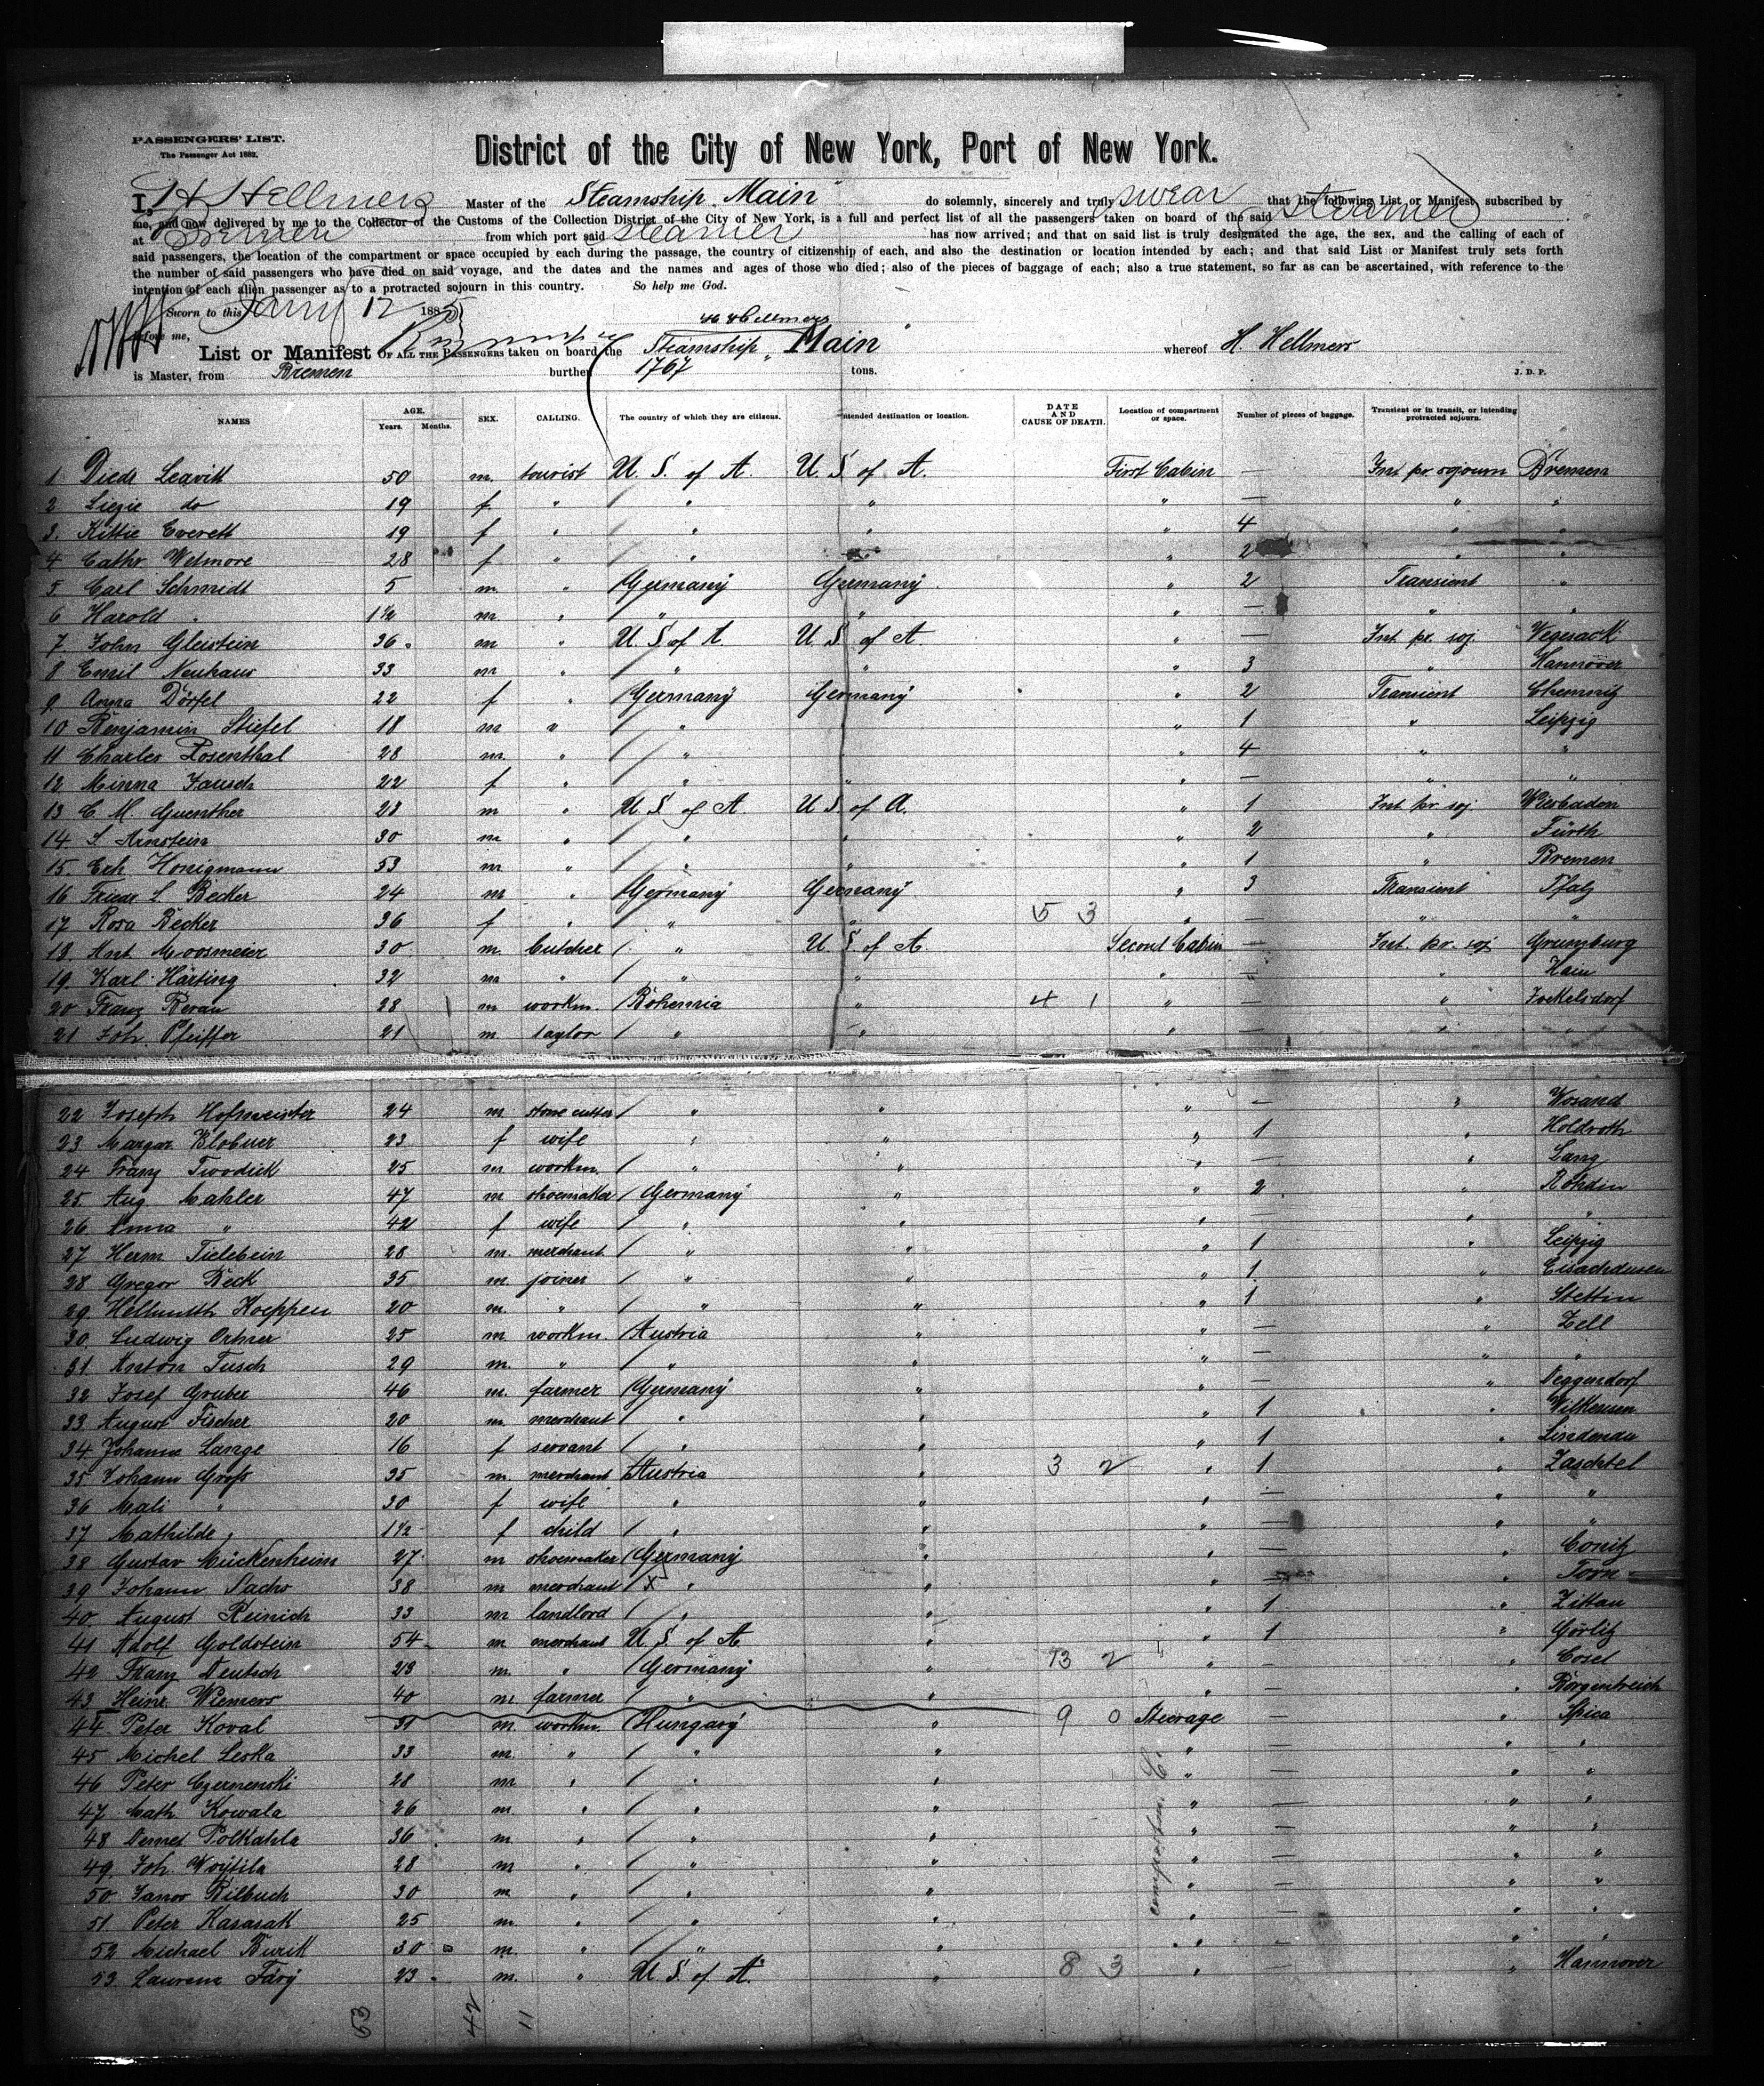 PASSENGERS' LIST.
The Passenger Act 1882.
District of the City of New York, Port of New York.
I, H Hellmers Master of the Steamship "Main" do solemnly, sincerely and truly swear that the following List or Manifest subscribed by
me, and now delivered by me to the Collector of the Customs of the Collection District of the City of New York, is a full and perfect list of all the passengers taken on board of the said steamer
at Bremen from which port said steamer has now arrived; and that on said list is truly designated the age, the sex, and the calling of each of
said passengers, the location of the compartment or space occupied by each during the passage, the country of citizenship of each, and also the destination or location intended by each; and that said List or Manifest truly sets forth
the number of said passengers who have died on said voyage, and the dates and the names and ages of those who died; also of the pieces of baggage of each; also a true statement, so far as can be ascertained, with reference to the
intention of each alien passenger as to a protracted sojourn in this country. So help me God.
Sworn to this Jany 12 1885
before me, H Hellmers
List or Manifest OF ALL THE PASSENGERS taken on board the Steamship "Main" whereof H. Hellmers
is Master, from Bremen burthen 1767 tons. J. D. P.
NAMES AGE. Years. Months. SEX. CALLING. The country of which they are citizens. Intended destination or location. DATE AND CAUSE OF DEATH. Location of compartment or space. Number of pieces of baggage. Transient or in transit, or intending protracted sojourn.
1 Diedr Leavitt 50 m. tourist U. S. of A. U. S. of A. First Cabin — Int pr sojourn Bremen
2 Liezie do 19 f. " " " " — " "
3. Kittie Everett 19 f " " " " 4 " "
4 Cathr Wetmore 28 f " " " " 2 " "
5 Carl Schmidt 5 m " Germany Germany " 2 Transient "
6 Harold " 1½ m " " " " — " "
7 John Gleistein 36 m " U. S of A. U. S of A. " — Int pr. soj. Vegesack
8 Emil Neuhaus 33 m " " " " 3 " Hannover
9 Anna Dörfel 22 f " Germany Germany " 2 Transient Chemnitz
10 Benjamin Stiefel 18 m " " " " 1 " Leipzig
11 Charles Rosenthal 28 m. " " " " 4 " "
12 Minna Jausch 22 f " " " " — " "
13 C. M. Guenther 28 m " U. S of A. U. S. of A. " 1 Int pr soj. Wiesbaden
14 S. Arnstein 30 m " " " " 2 " Fürth
15. Erh. Honigmann 53 m " " " " 1 " Bremen
16 L Becker 24 m " Germany Germany " 3 Transient Pfalz
17 Rosa Becker 36 f " " " 5 3 " — " "
18. Ant. Moosmeier 30 m. butcher " U. S. of A. Second Cabin — Int. pr. soj Grumburg
19 Karl Härting 32 m " " " " — " Hain
20 Franz Beran 28 m workm. Bohemia " 4 1 " — " Jockelsdorf
21 Joh. Pfeiffer 21 m taylor " " " — " "
22 Joseph Hofmeister 24 m stone cutter " " " — " Wosand
23 Margar Klobuer 23 f wife " " " 1 " Holdroth
24 Franz Twodick 25 m workm. " " " — " Lang
25. Aug Mahler 47 m shoemaker Germany " " 2 " Rohdin
26 Anna " 42 f wife " " " — " "
27 Herm Tielebein 28 m. merchant " " " 1 " Leipzig
28 Gregor Beck 35 m. joiner " " " 1.
29 Hellmuth Koeppen 20 m. " " " " 1 " Stettin
30. Ludwig Ortner 25 m workm. Austria " " — " Zell
31 Anton Tusch 29 m. " " " " — " "
32 Josef Gruber 46 m. farmer Germany " " — " Deggendorf
33 August Fischer 20 m. merchant " " " 1 " Wilkensen
34 Johanne Lange 16 f servant " " " 1 " Lindenau
35 Johann Groß 35 m. merchant Austria " 3 2 " 1 " Zaschtel
36 Mali " 30 f wife " " " — " "
37 Mathilde " 1½ f child " " " — " "
38 Gustav Mückenheim 27 m shoemaker Germany " " — " Conitz
39 Johann Sachs 38 m merchant X " " " — " Torn
40. August Reinich 33 m landlord " " " 1 " Zittau
41 Adolf Goldstein 54 m merchant U. S. of A. " " 1 " Görlitz
42 Franz Deutsch 23 m. " Germany " 13 2 " — " Cosel
43 Heinr. Wiemers 40 m. farmer " " " — " Borgentreich
44 Peter Koval 31 m. workm. Hungary " 9 0 Steerage — "
45 Michel Leska 33 m. " " " " — " "
46 Peter Czernenski 28 m " " " " — " "
47 Math. Kowala 26 m. " " " " — " "
48 Demet Polkahla 36 m. " " " " — " "
49. Joh. Woytila 28 m " " " " — " "
50 Janos Bilbuch 30 m " " " " — " "
51 Peter Kasasak 25 m. " " " " — " "
52 Michael Burik 30 m. " " " " — " "
53 Laurenz Fary 23 m. " U. S. of A. " 8 3 " — " Hannover
compartm. C.
53 42 11